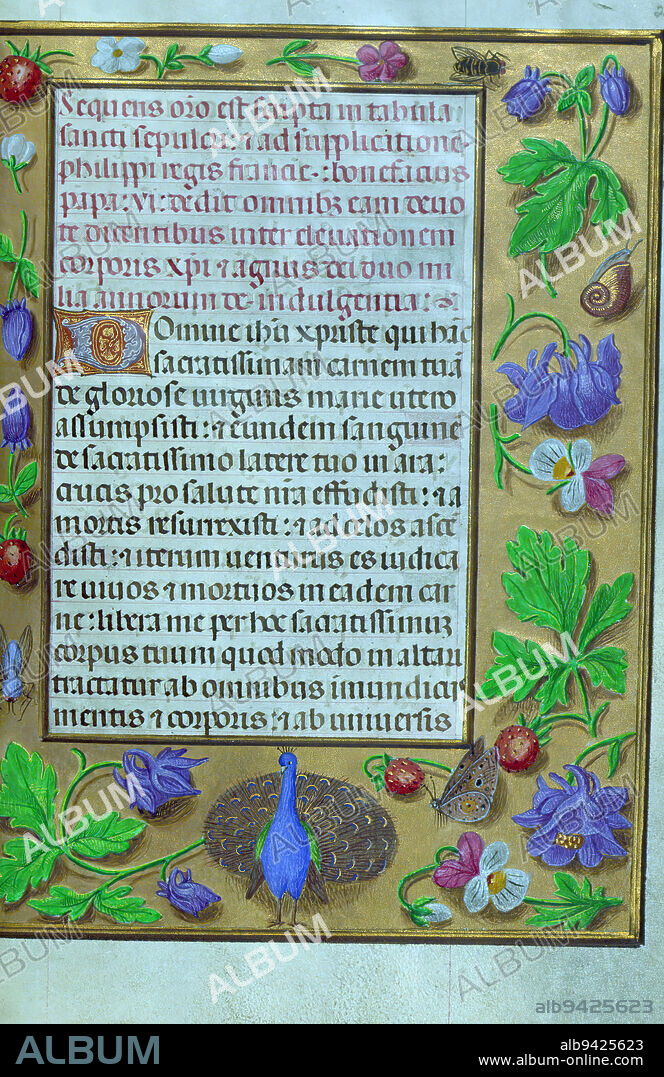 Sequens oro est scripta in tabula
sancti sepulcri ⁊ ad supplicatione
philippi regis francie⁖ bonefacius
papa: vi: dedit omnibz eam deuo
te dicentibus inter eleuationem
corporis xpi ⁊ agnus dei duo mi
lia annorum de indulgentia:
Domine ihu xpriste qui hanc
sacratissimam carnem tuā
de gloriose uirginis marie utero
assumpsisti: ⁊ eundem sanguinē
de sacratissimo latere tuo in ara:
crucis pro salute nra effudisti: ⁊ a
mortis resurrexisti: ⁊ ad celos asce
disti: ⁊ iterum uenturus es iudica
re uiuos ⁊ mortuos in eadem car
ne: libera me per hoc sacratissimuz
corpus tuum quod modo in altari
tractatur ab omnibus inmundici
mentis ⁊ corporis: ⁊ ab uniuersis
alb9425623
ALBUM
alb9425623
www.album-online.com